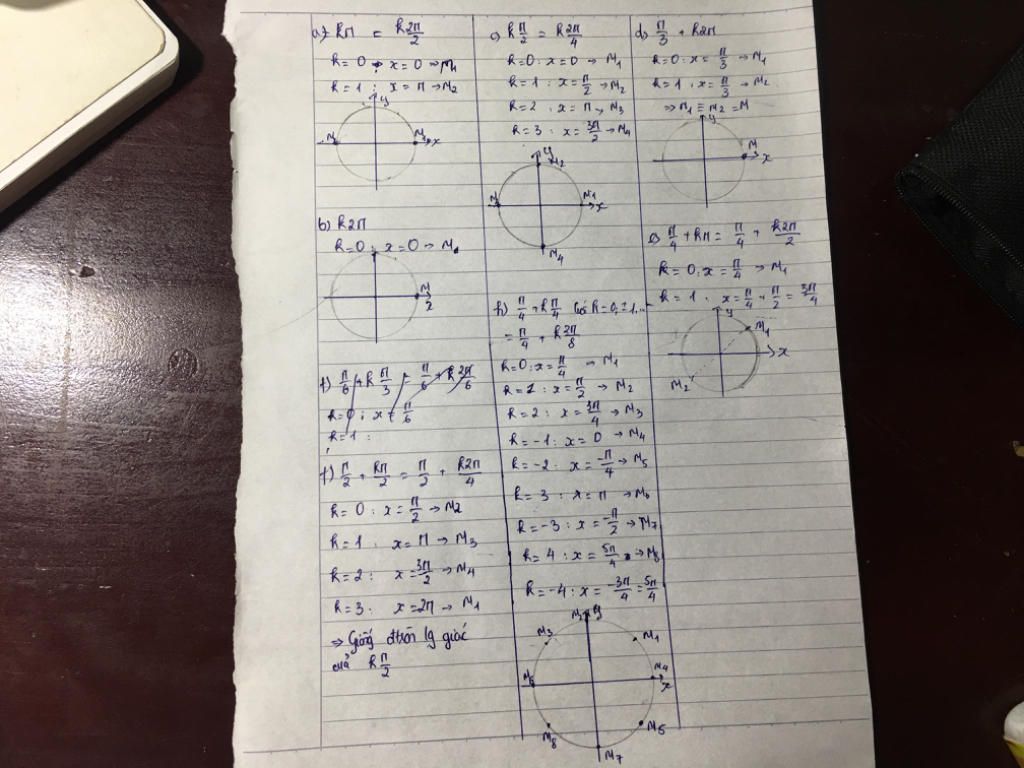 a) kπ = k2π/2
k=0 → x=0 → M1
k=1 : x=π → M2
y
M2
x
b) k2π
k=0 : x=0 → M
M
f) π/6 + k π/3 = π/6 + k 2π/6
k=0 : x= π/6
k=1 :
f) π/2 + kπ/2 = π/2 + k2π/4
k=0 : x= π/2 → M2
k=1 : x= π → M3
k=2 : x= 3π/2 → M4
k=3 : x=2π → M1
⇒ Giống đtròn lg giác
của k π/2
c) k π/2 = k2π/4
k=0 : x=0 → M1
k=1 : x= π/2 → M2
k=2 : x= π → M3
k=3 : x= 3π/2 → M4
y
M2
M1
x
M4
h) π/4 + k π/4 k=0, ±1...
= π/4 + k 2π/8
k=0 : x= π/4 → M1
k=1 : x= π/2 → M2
k=2 : x= 3π/4 → M3
k=-1 : x= 0 → M4
k=-2 : x= -π/4 → M5
k=3 : x= π → M6
k=-3 : x= -π/2 → M7
k=4 : x= 5π/4 → M8
k=-4 : x= -3π/4 = 5π/4
y
M3
M1
M4
x
M6
M8
M5
M7
d) π/3 + k2π
k=0 : x= π/3 → M1
k=1 : x= π/3 → M2
⇒ M1 ≡ M2 = M
y
M
x
e) π/4 + kπ = π/4 + k2π/2
k=0 : x= π/4 → M1
k=1 : x= π/4 + π/2 = 3π/4
y
M1
x
M2